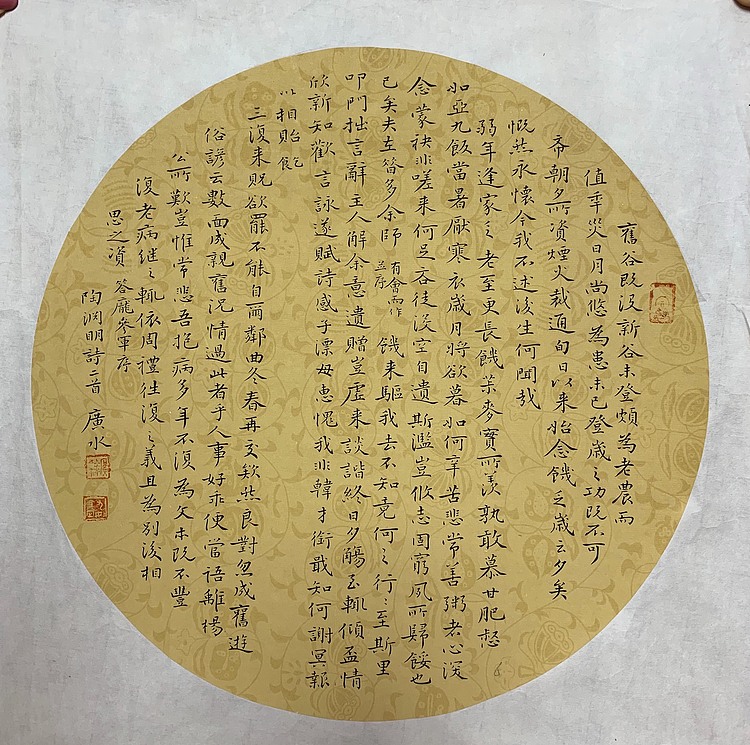 舊谷既沒新谷未登頗為老農而
值年災日月尚悠為患未已登歲之功既不可
希朝夕所資煙火裁通旬日以來始念饑乏歲云夕矣
慨然永懷今我不述後生何聞哉
弱年逢家乏老至更長饑菽麥實所羨孰敢慕甘肥惄
如亞九飯當暑厭寒衣歲月將欲暮如何辛苦悲常善粥者心深
念蒙袂非嗟來何足吝徒沒空自遺斯濫豈攸志固窮夙所歸餒也
已矣夫在昔多余師 有會而作並序 饑來驅我去不知竟何之行〻至斯里
叩門拙言辭主人解余意遺贈豈虛來談諧終日夕觴至輒傾盃情
欣新知歡言詠遂賦詩感子漂母惠愧我非韓才銜戢知何謝冥報
以相貽 乞食
三復來貺欲罷不能自爾鄰曲冬春再交欵然良對忽成舊遊
俗諺云數面成親舊況情過此者乎人事好乖便當語離楊
公所歎豈惟常悲吾抱病多年不復為文本既不豐
復老病繼之輒依周禮往復之義且為別後相
思之資 答龐參軍序
陶淵明詩二首 廣水